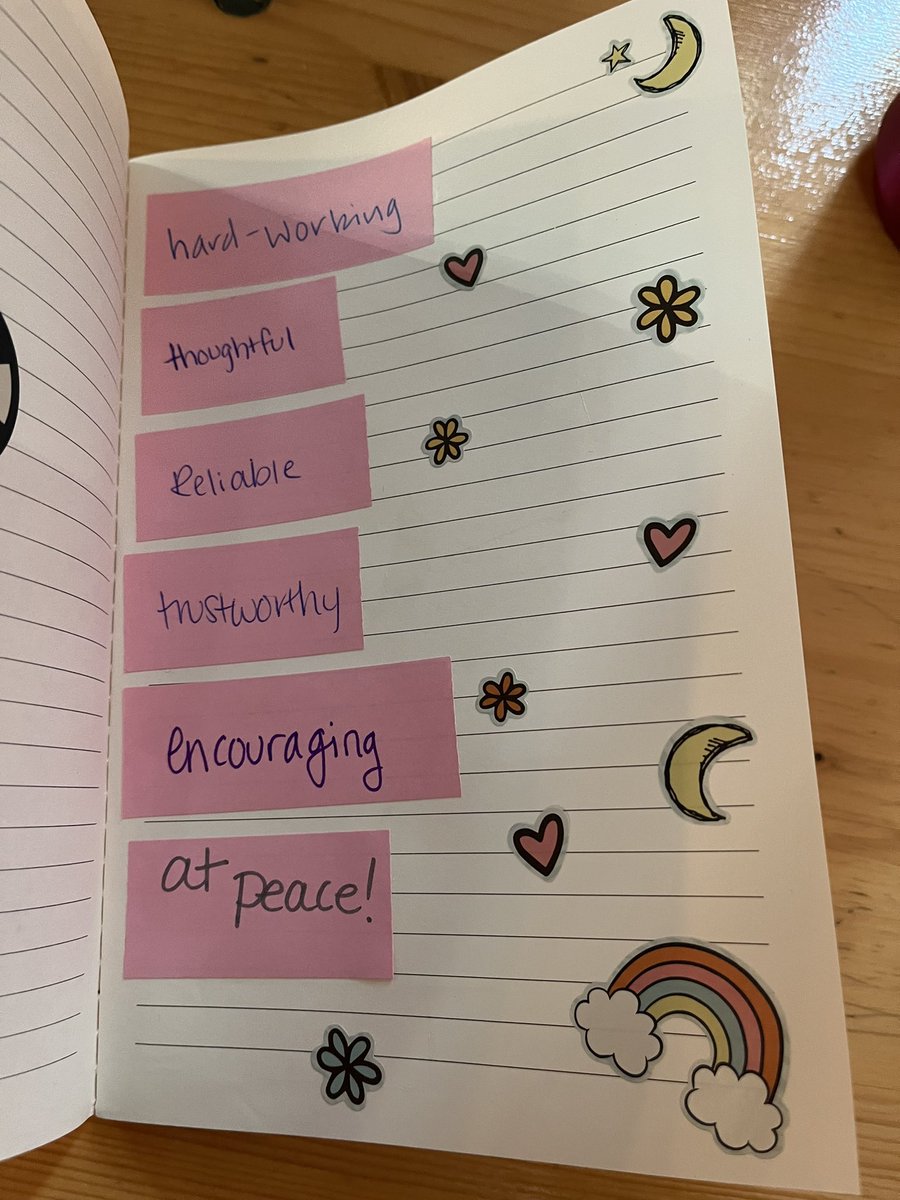 hard-working
thoughtful
Reliable
trustworthy
encouraging
at peace!